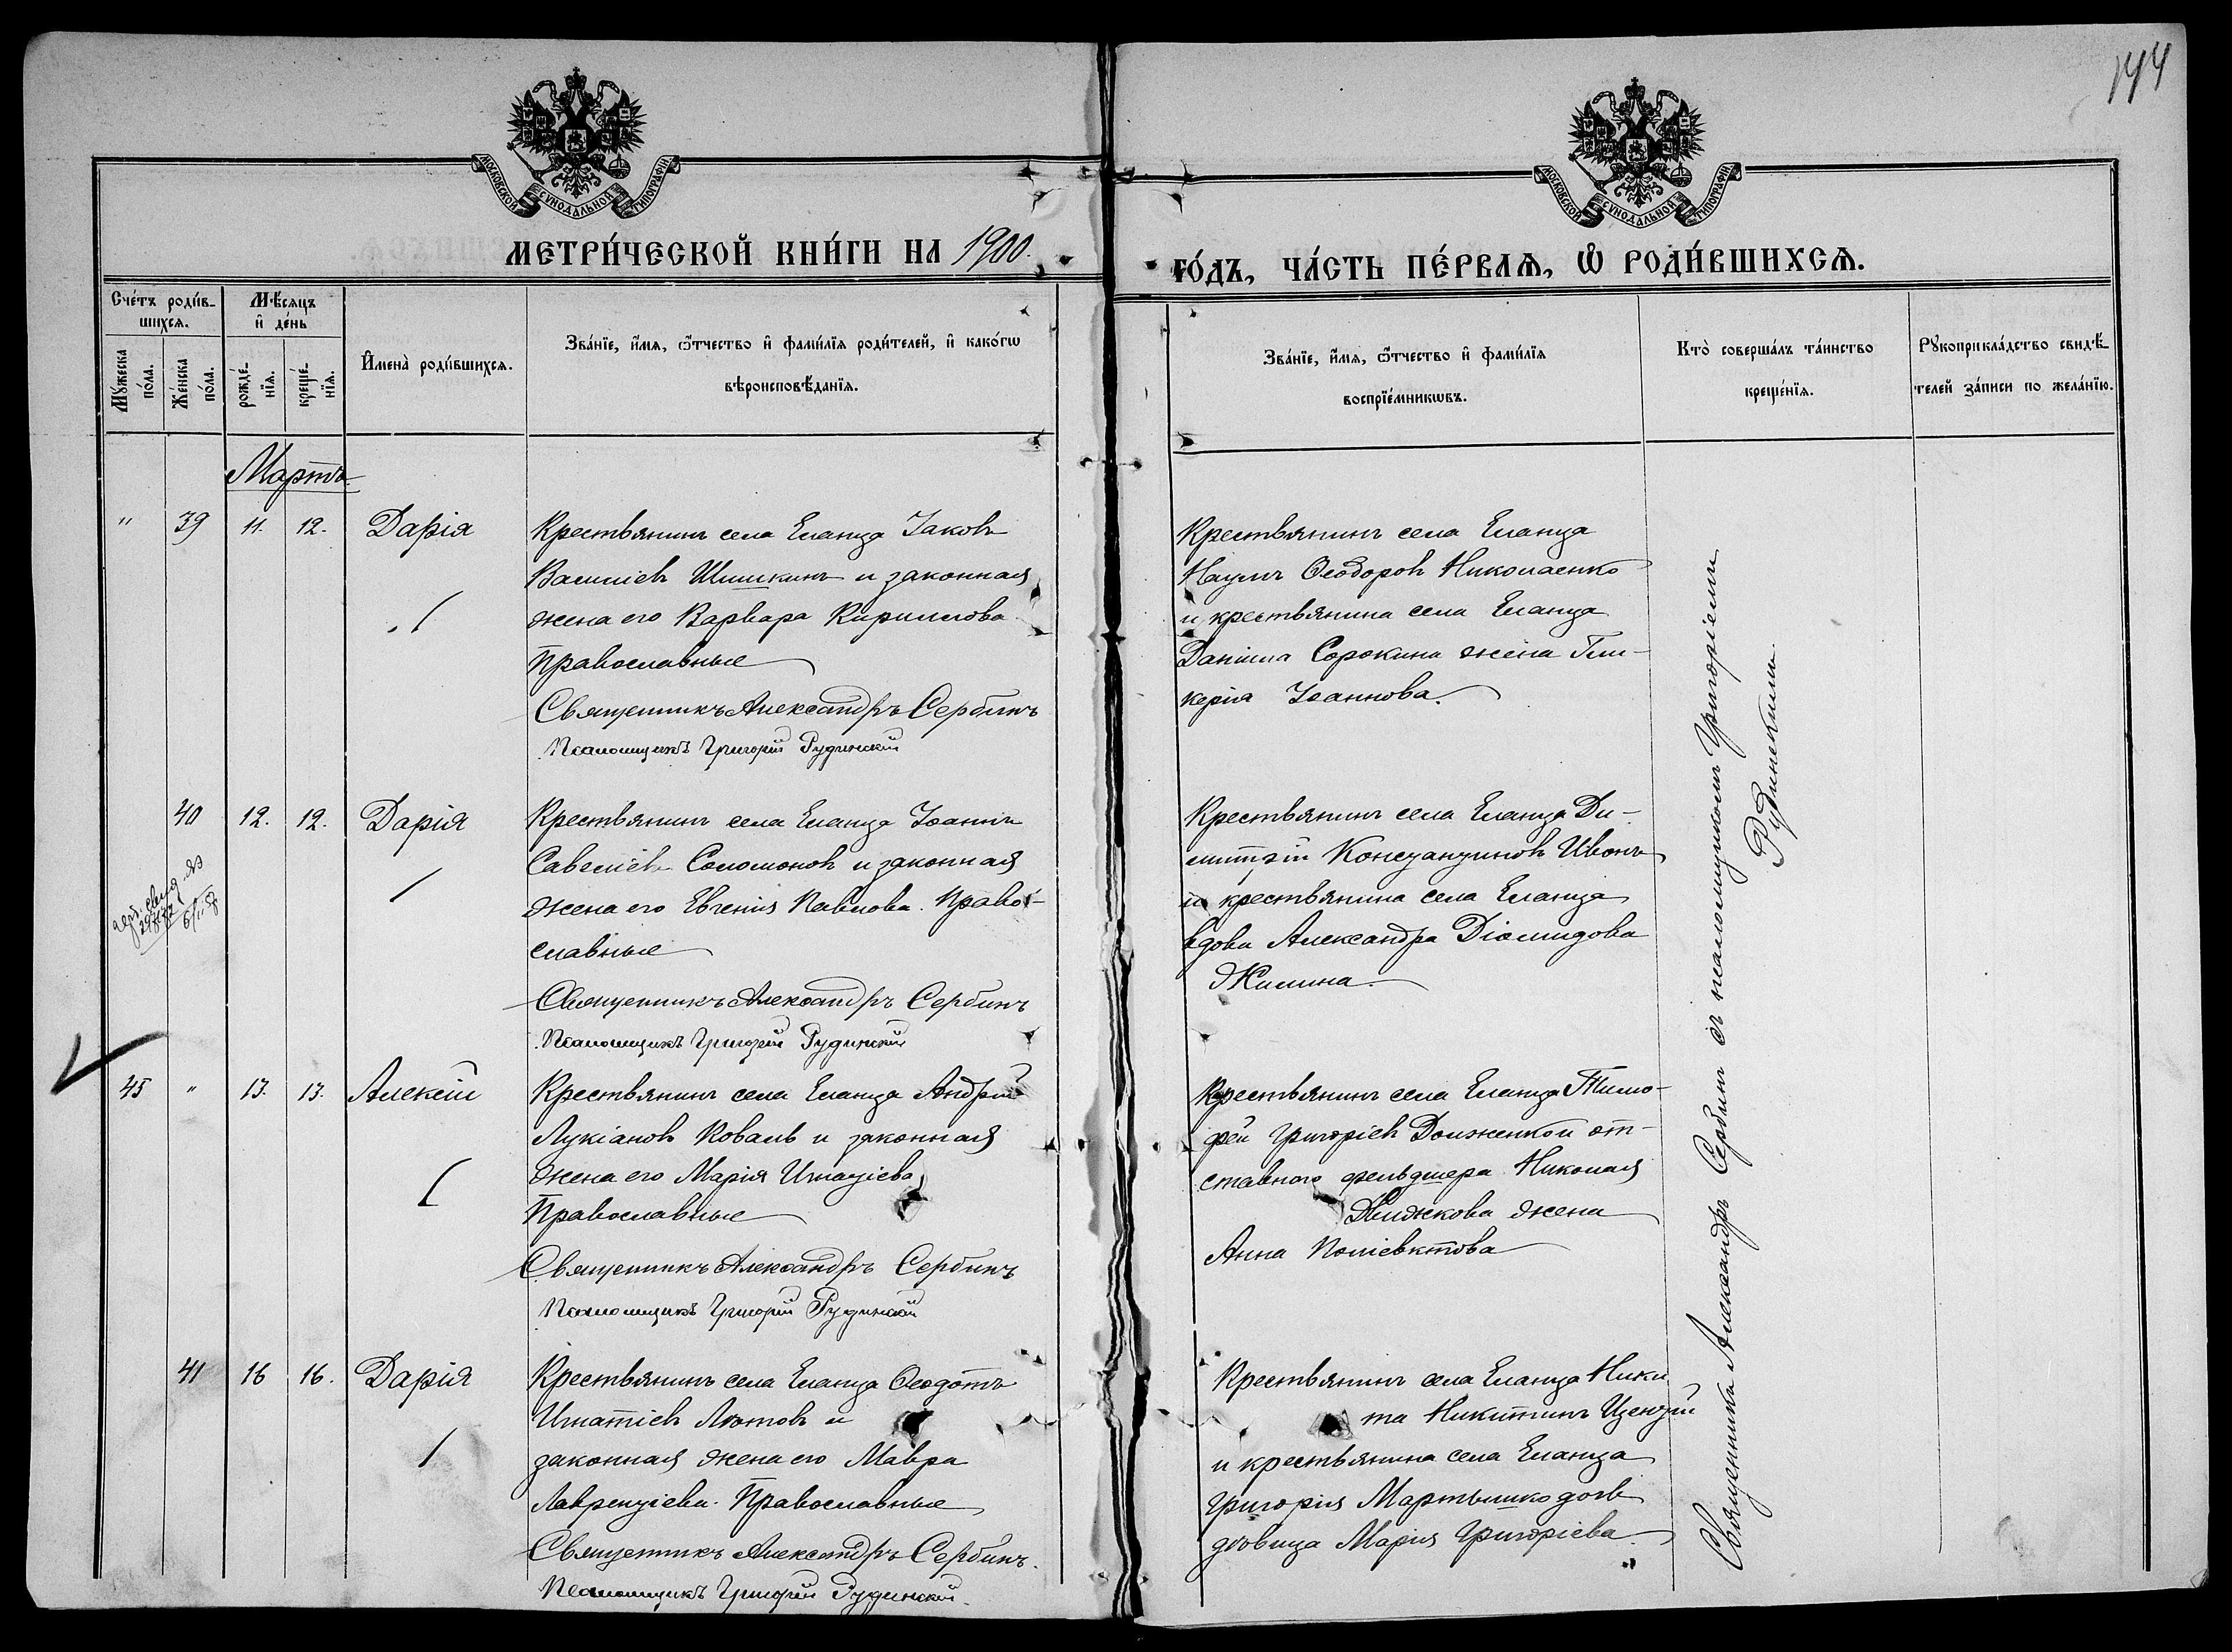 144
МОСКОВСКОЙ СУНОДАЛЬНОЙ ТИПОГРАФІИ
МОСКОВСКОЙ СУНОДАЛЬНОЙ ТИПОГРАФІИ
МЕТРИ́ЧЕСКОЙ КНИ́ГИ НА 1900.
ГО́ДЪ, ЧА́СТЬ ПЕ́РВАѦ, Ѡ РОДИ́ВШИХСѦ.
Сче́тъ роди́в-
шихсѧ.
Мѣ́сѧцъ
и де́нь
Му́жеска
по́ла.
Же́нска
по́ла.
рожде́-
нїѧ.
креще́-
нїѧ.
Имена̀ роди́вшихсѧ.
Зва́нїе, и́мѧ, ѻ́тчество и фами́лїѧ роди́телей, и како́гѡ
вѣроисповѣ́данїѧ.
Зва́нїе, и́мѧ, ѻ́тчество и фами́лїѧ
воспрїе́мникѡвъ.
Кто̀ соверша́лъ та́инство
креще́нїѧ.
Рꙋкоприкла́дство свидѣ́-
телей за́писи по жела́нїю.
Мартъ
" 39 11. 12. Дарія
Крестьянинъ села Еланца Іаковъ
Василіевъ Шишкинъ и законная
жена его Варвара Кириллова
Православные
Священникъ Александръ Сербинъ
Псаломщикъ Григорій Рудинскій
Крестьянинъ села Еланца
Наумъ Ѳеодоровъ Николаенко
и крестьянина села Еланца
Даніила Сорокина жена Гли-
керія Іоаннова.
40 12. 12. Дарія
Крестьянинъ села Еланца Іоаннъ
Савеліевъ Соломоновъ и законная
жена его Евгенія Павлова. Право-
славные
Священникъ Александръ Сербинъ
Псаломщикъ Григорій Рудинскій
Крестьянинъ села Еланца Ди-
митрій Констанциновъ Ивонъ
и крестьянина села Еланца
вдова Александра Діомидова
Жилина
45 " 13. 13. Алексій
Крестьянинъ села Еланца Андрей
Лукіановъ Коваль и законная
жена его Марія Игнаціева
Православные
Священникъ Александръ Сербинъ
Псаломщикъ Григорій Рудинскій
Крестьянинъ села Еланца Тимо-
фей Григоріевъ Долженкои от-
ставного фельдшера Николая
жена
Анна Поліевктова
41 16 16. Дарія
Крестьянинъ села Еланца Ѳеодотъ
Игнатіевъ Лютовъ и
законная жена его Мавра
Лаврентіева. Православные
Священникъ Александръ Сербинъ.
Псаломщикъ Григорій Рудинскій.
Крестьянинъ села Еланца Ники
та Никитинъ
и крестьянина села Еланца
Григорія Мартышко дочь
дѣвица Марія Григоріева.
Священникъ Александръ Сербинъ съ псаломщикомъ Григоріемъ
Рудинскимъ.